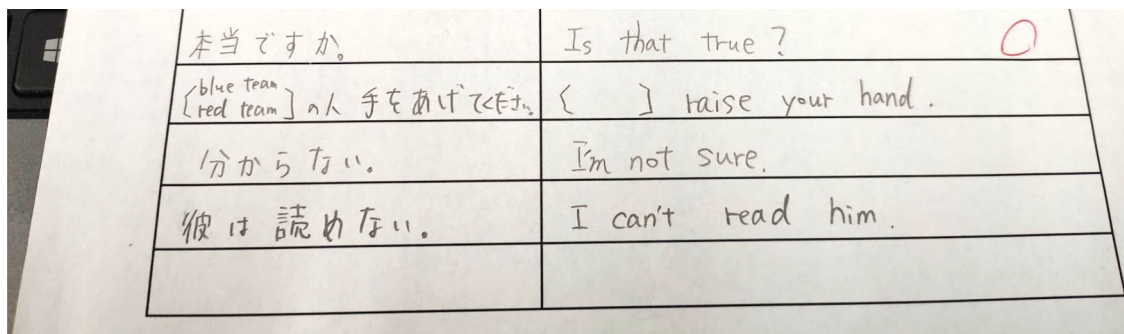 本当ですか。
Is that true?
[blue team
red team]の人 手をあげてください。
[ ] raise your hand.
分からない。
I'm not sure.
彼は読めない。
I can't read him.